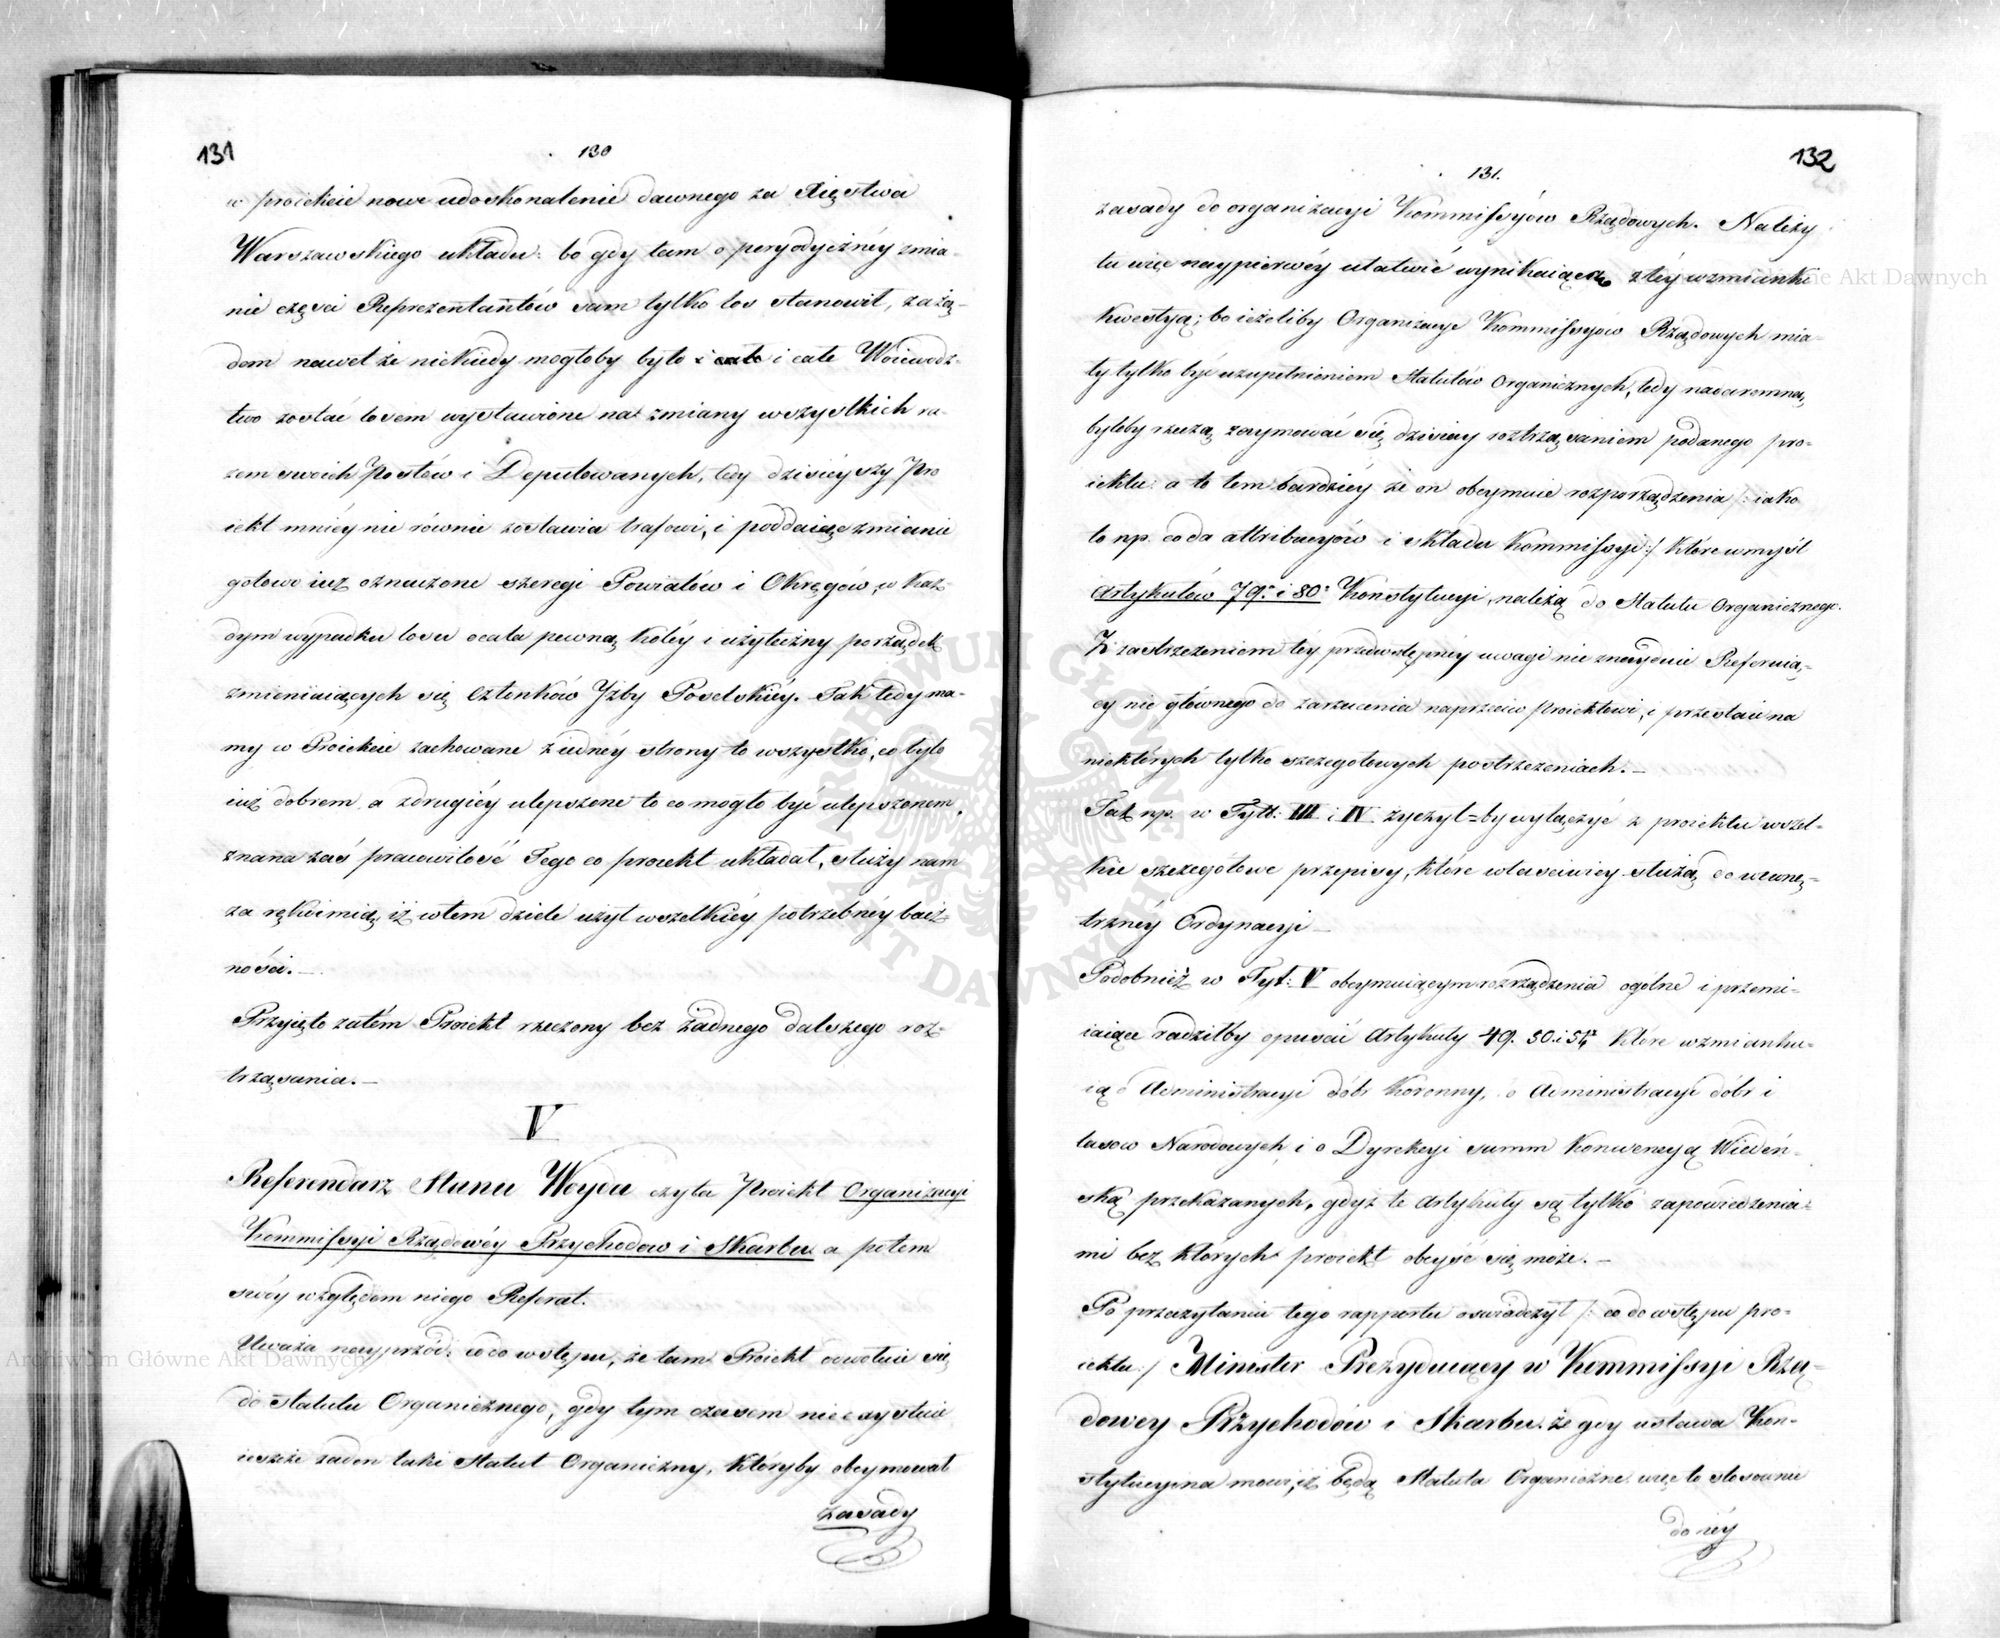 131
130
w proiekcie nowe udoskonalenie dawnego za Xięstwa
Warszawskiego układu: bo gdy tam o peryodycznéy zmia-
nie części Reprezentantów sam tylko los stanowił, zażą-
dem nawet że niekiedy mogłoby było i całe Woiewodz-
two zostać losem wystawione na zmiany wszystkich ra-
zem swoich Posłów i Deputowanych, tedy dzisieyszy Pro
iekt mniéy nierównie zostawia trafowi, i poddaiąc zmianie
gotowe iuż oznaczone szeregi Powiatów i Okręgów, w każ-
dym wypadku losu ocala pewną koléy i użyteczny porządek
zmieniaiących się Członków Izby Poselskiéy. Tak tedy ma-
my w Proiekcie zachowane z iednéy strony to wszystko, co było
iuż dobrem a zdrugiéy ulepszone to co mogło być ulepszonem,
znana zaś pracowitość Tego co proiekt układał, służy nam
za rękoimią, iż wtem dziele użył wszelkiéy potrzebnéy bacz-
ności.—
Przyięto zatém Proiekt rzeczony bez żadnego dalszego roz-
trząsania.—
V
Referendarz Stanu Woyda czyta Proiekt Organizacyi
Kommissyi Rządowéy Przychodow i Skarbu a potem
swóy względem niego Referat.
Uważa nayprzód: co do wstępu, że tam Proiekt odwołuie się
do Statutu Organicznego, gdy tym czasem nieexystuie
ieszcze żaden taki Statut Organiczny, któryby obeymował
zasady
132
131.
zasady do organizacyi Kommissyów Rządowych. Należy
tu więc naypierwéy ułatwić wynikaiącą ztéy wzmianki
kwestyą; bo ieżeliby Organizacye Kommissyów Rządowych mia-
ły tylko być uzupełnieniem Statutów Organicznych, tedy nadaremną
byłoby rzeczą zaymować się dzisiay roztrząsaniem podanego pro-
iektu: a to tem bardziéy że on obeymuie rozporządzenia /: iako
to np. co do attribucyów i składu Kommissyi :/ które w myśl
Artykułów 79. i 80. Konstytucyi, należą do Statutu Organicznego.
Z zastrzeżeniem téy przedwstępnéy uwagi nie znayduie Referuią-
cy nic głównego do zarzucenia naprzeciw Proiektowi, i przestaie na
niektórych tylko szczegółowych postrzeżeniach.—
Tak np. w Tytt: III i IV. życzył=by wyłączyć z proiektu wszel-
kie szczegółowe przepisy, które właściwiey służą do wewnę-
trznéy Ordynacyi—
Podobnież w Tyt: V obeymuiącym rozrządzenia ogólne i przemi-
iaiące radziłby opuścić Artykuły 49. 50. i 51. które wzmianku-
ią o Administracyi dóbr Koronny, o Administracyi dóbr i
lasow Narodowych i o Dyrekcyi summ Konwencyą Wiedeń-
ską przekazanych, gdyż te Artykuły są tylko zapowiedzenia-
mi bez których proiekt obeyść się może.—
Po przeczytaniu tego rapportu oświadczył /: co do wstępu pro-
iektu:/ Minister Prezyduiący w Kommissyi Rzą-
dowey Przychodów i Skarbu. że gdy ustawa Kon-
stytucyina mowi, iż będą Statuta Organiczne. więc to stosownie
do iéy